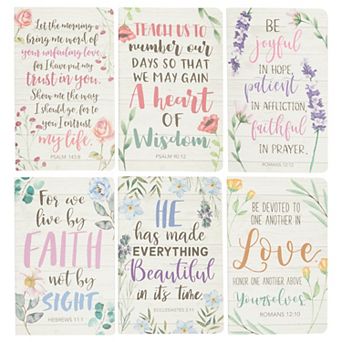 Let the morning
bring me word of
your unfailing love,
for I have put my
trust in you.
Show me the way
I should go, for to
you I entrust
my life.
PSALM 143:8
TEACH US TO
number our
DAYS SO THAT
WE MAY GAIN
A heart
OF
Wisdom
PSALM 90:12
BE
joyful
IN HOPE,
patient
IN AFFLICTION,
faithful
IN PRAYER.
ROMANS 12:12
For we
live by
FAITH
not by
SIGHT.
HEBREWS 11:1
HE
has made
EVERYTHING
Beautiful
in its Time.
ECCLESIASTES 3:11
BE DEVOTED TO
ONE ANOTHER IN
Love.
HONOR ONE ANOTHER ABOVE
Yourselves.
ROMANS 12:10